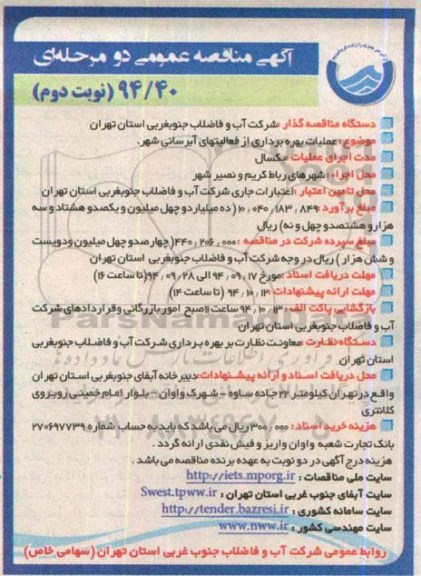 آگهی مناقصه عمومی دو مرحله‌ای
۹۴/۴۰ (نوبت دوم)
دستگاه مناقصه گذار: شرکت آب و فاضلاب جنوبغربی استان تهران
موضوع: عملیات بهره برداری از فعالیتهای آبرسانی شهر.
مدت اجرای عملیات: یکسال
محل اجراء: شهرهای رباط کریم و نصیر شهر
محل تامین اعتبار: اعتبارات جاری شرکت آب و فاضلاب جنوبغربی استان تهران
مبلغ برآورد: ۱۰/۰۴۰/۱۸۳/۸۴۹ (ده میلیارد و چهل میلیون و یکصدو هشتاد و سه
هزار و هشتصدو چهل و نه) ریال
مبلغ سپرده شرکت در مناقصه: ۴۴۰/۲۰۶/۰۰۰ (چهارصدو چهل میلیون و دویست
و شش هزار) ریال در وجه شرکت آب و فاضلاب جنوبغربی استان تهران
مهلت دریافت اسناد: مورخ ۹۴/۰۹/۱۷ الی ۹۴/۰۹/۲۸ (تا ساعت ۱۶)
مهلت ارائه پیشنهادات: ۹۴/۱۰/۱۲ (تا ساعت ۱۴)
بازگشایی پاکت الف: ۹۴/۱۰/۱۳ ساعت ۱۱ صبح امور بازرگانی و قراردادهای شرکت
آب و فاضلاب جنوبغربی استان تهران
دستگاه نظارت: معاونت نظارت بر بهره برداری شرکت آب و فاضلاب جنوبغربی
استان تهران
محل دریافت اسناد و ارائه پیشنهادات: دبیرخانه آبفای جنوبغربی استان تهران
واقع در تهران کیلومتر ۲۲ جاده ساوه - شهرک واوان - بلوار امام خمینی روبروی
کلانتری
هزینه خرید اسناد: ۳۰۰/۰۰۰ ریال می باشد که باید به حساب شماره ۲۷۰۶۹۷۷۳۹
بانک تجارت شعبه واوان واریز و فیش نقدی ارائه گردد.
هزینه درج آگهی در دو نوبت به عهده برنده مناقصه می باشد.
سایت ملی مناقصات: http://iets.mporg.ir
سایت آبفای جنوب غربی استان تهران: Swest.tpww.ir
سایت سامانه کشوری: http://tender.bazresi.ir
سایت مهندسی کشور: www.nww.ir
روابط عمومی شرکت آب و فاضلاب جنوب غربی استان تهران (سهامی خاص)